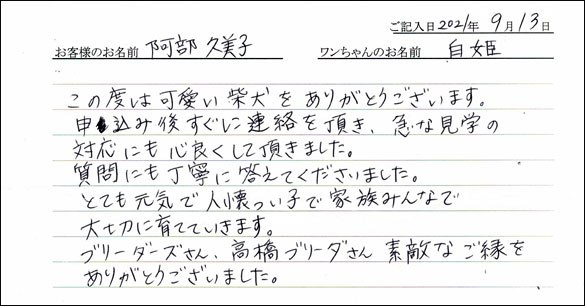 ご記入日2021年 9月 13日
お客様のお名前 阿部 久美子 ワンちゃんのお名前 白姫
この度は可愛い柴犬をありがとうございます。
申し込み後すぐに連絡を頂き、急な見学の
対応にも心良くして頂きました。
質問にも丁寧に答えてくださいました。
とても元気で人懐っい子で家族みんなで
大切に育てていきます。
ブリーダーズさん、高橋ブリーダさん 素敵なご縁を
ありがとうございました。